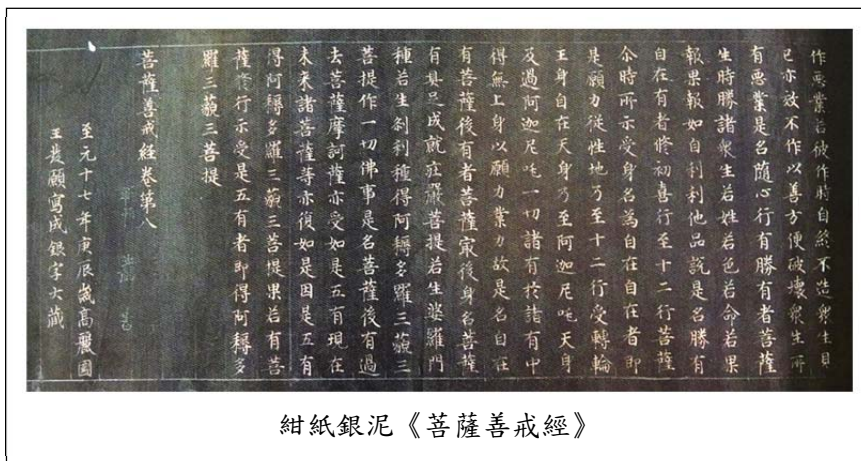 作惡業若彼作時自終不造衆生見
已亦放不作以善方便破壞衆生所
有惡業是名隨心行有勝有者菩薩
生時勝諸衆生若姓若色若命若果
報果報如自利利他品說是名勝有
自在有者修初喜行至十二行菩薩
尒時所示受身名為自在自在者即
是願力從性地乃至十二行受轉輪
王身自在天身乃至阿迦尼吒天身
及過阿迦尼吒一切諸有於諸有中
得無上身以願力業力故是名自在
有菩薩後有者菩薩㝡後身名菩薩
有具足成就莊嚴菩提若生婆羅門
種若生剎利種得阿耨多羅三藐三
菩提作一切佛事是名菩薩後有過
去菩薩摩訶薩亦受如是五有現在
未来諸菩薩等亦復如是因是五有
得阿耨多羅三藐三菩提果若有菩
薩修行示受是五有者即得阿耨多
羅三藐三菩提
菩薩善戒経卷第八
至元十七年庚辰歲高麗国
王發願寫成銀字大藏
紺紙銀泥《菩薩善戒經》